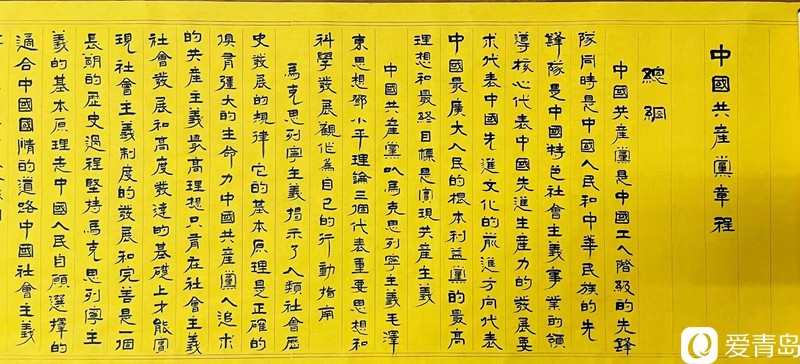 中國共産黨章程
總綱
中國共産黨是中國工人階級的先鋒
隊同時是中國人民和中華民族的先
鋒隊是中國特色社會主義事業的領
導核心代表中國先進生産力的發展要
求代表中國先進文化的前進方向代表
中國最廣大人民的根本利益黨的最高
理想和最終目標是實現共産主義
中國共産黨以馬克思列寧主義毛澤
東思想鄧小平理論三個代表重要思想和
科學發展觀作爲自己的行動指南
馬克思列寧主義揭示了人類社會歷
史發展的規律它的基本原理是正確的
俱有强大的生命力中國共産黨人追求
的共産主義最高理想只有在社會主義
社會發展和高度發達的基礎上才能實
現社會主義制度的發展和完善是一個
長期的歷史過程堅持馬克思列寧主
義的基本原理走中國人民自願選擇的
適合中國國情的道路中國社會主義
爱青岛